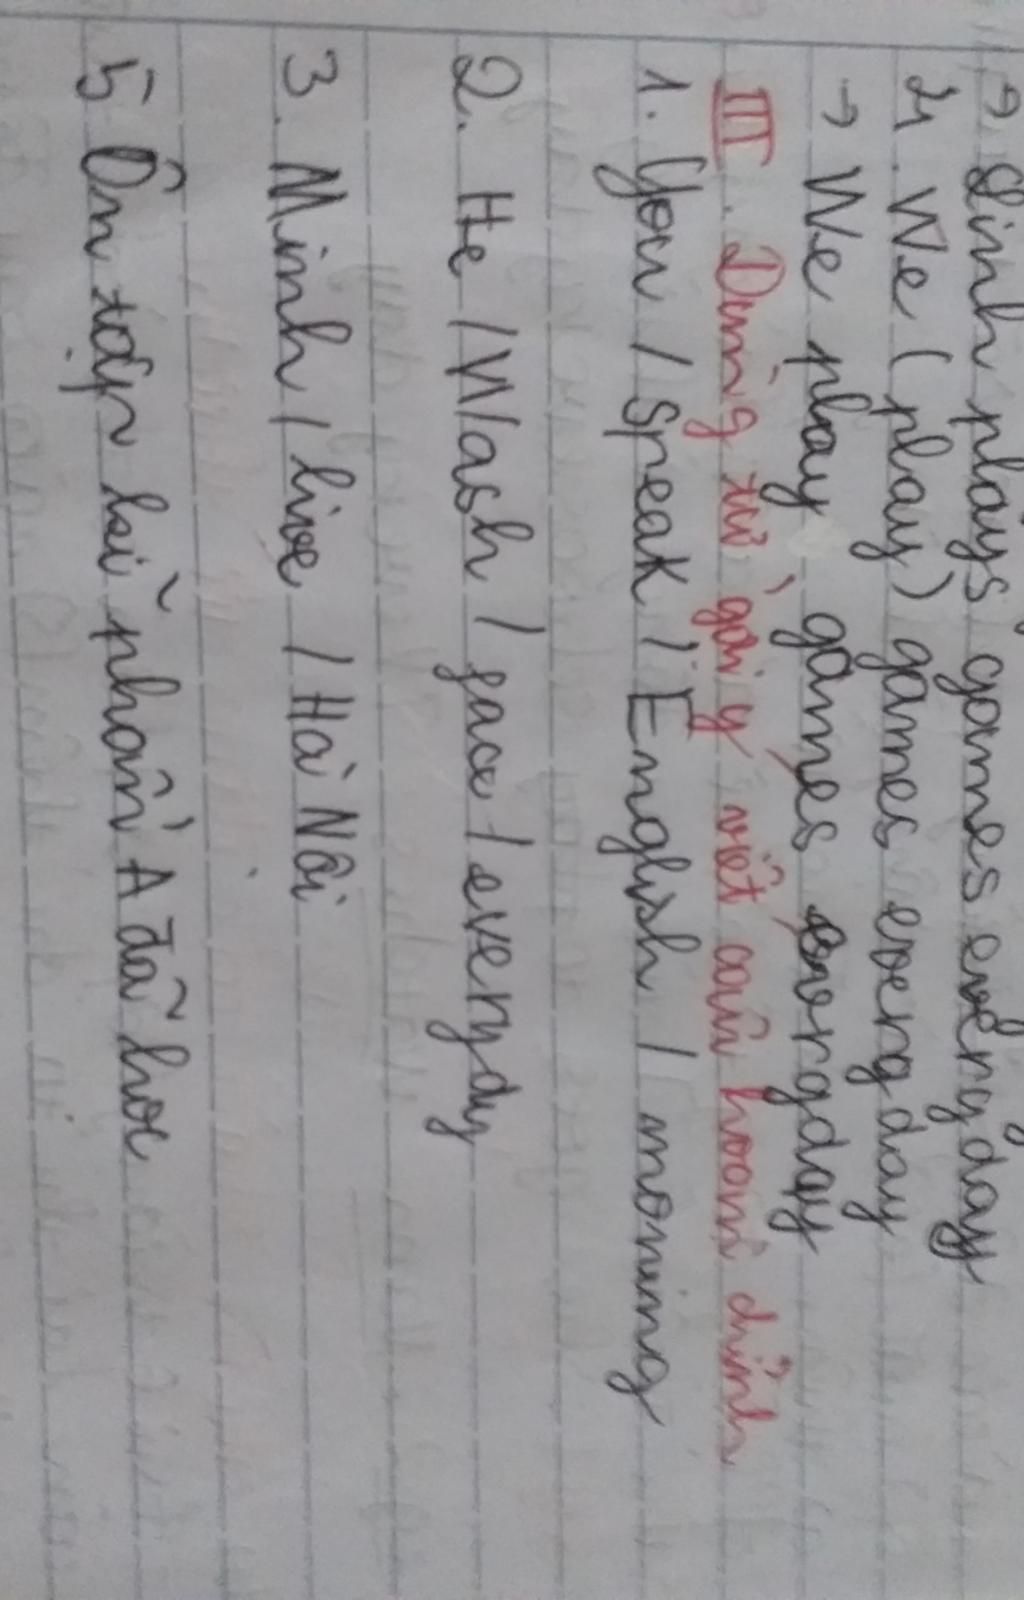 → Linh plays games every day
4. We (play) games every day
→ We play games every day
III. Dùng từ gợi ý viết câu hoàn chỉnh
1. You / Speak / English / morning
2. He / Wash / face / everydy
3. Minh / live / Hà Nội
5 Ôn tập lại phần A đã học